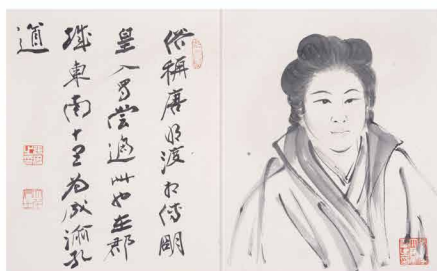 俗稱唐明渡相傳明
皇入蜀嘗過此地在郡
城東南十里為成渝孔
道